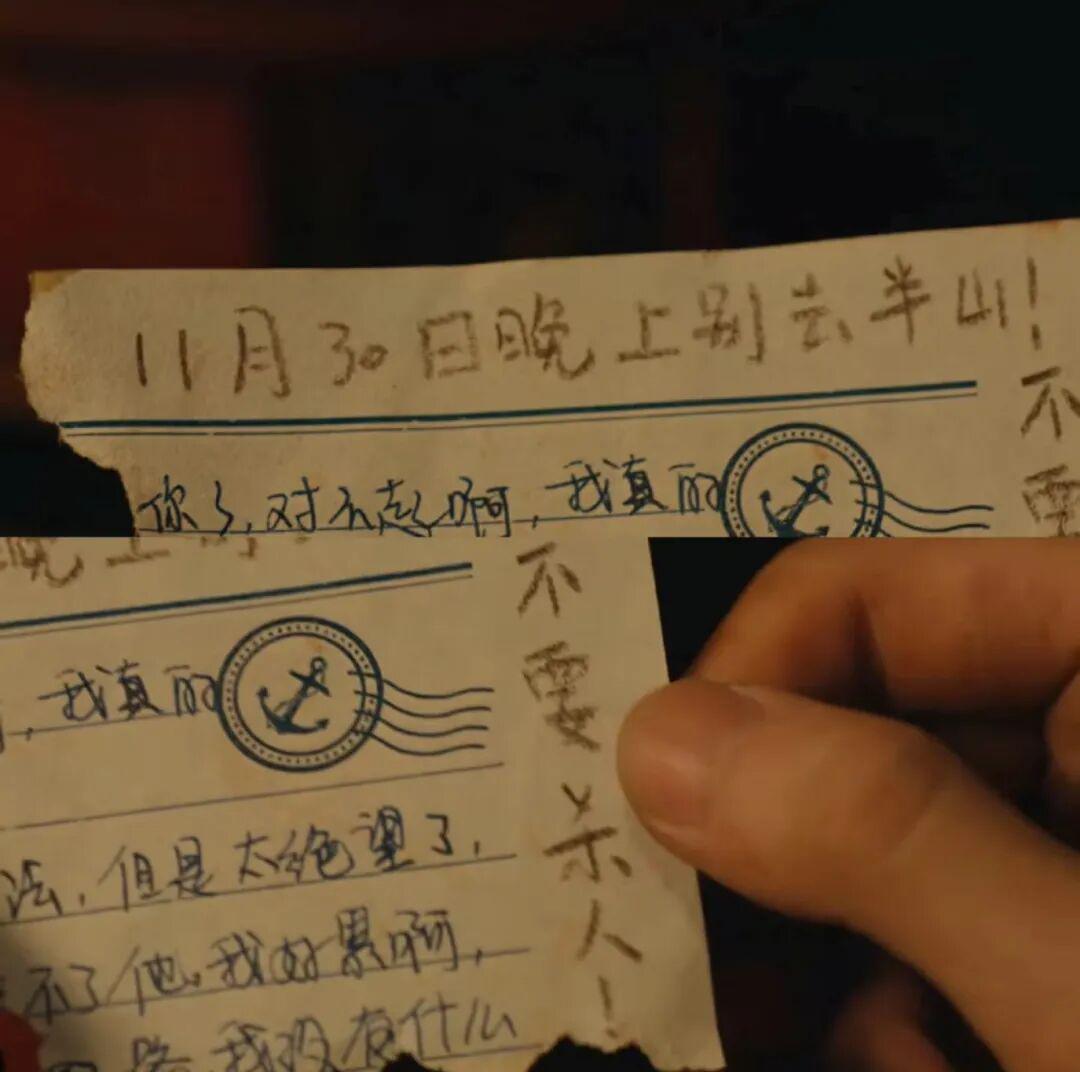 11月30日晚上别去半山!
不
要
你了,对不起啊,我真的
晚上
不要杀人!
,我真的
法,但是太绝望了,
不了他,我好累啊,
路,我没有什么